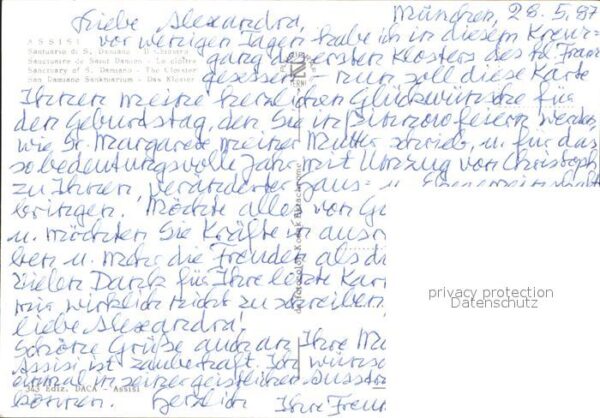 Liebe Alexandra, München, 28.5.87
vor wenigen Tagen habe ich in diesem Kreuz-
ASSISI
gang des ersten Klosters des hl. Franz
Santuario di S. Damiano - Il Chiostro
Sanctuaire de Saint Damien - Le cloître
Sanctuary of S. Damiano - The Cloister
San Damiano Sanktuarium - Das Kloster
gesessen - nun soll diese Karte
Ihnen meine herzlichen Glückwünsche für
den Geburtstag, den Sie in feiern werden,
wie Sr. Margarete meiner Mutter schrieb, u. für das
so bedeutungsvolle Jahr mit Umzug von Christoph
zu Ihnen, veränderter Haus- u.
bringen. Möchte alles von
u. möchten Sie Kräfte in
ben u. mehr die Freuden als
Vielen Dank für Ihre letzte
mir wirklich nicht zu schreiben,
liebe Alexandra!
Schöne Grüße auch an Ihre
Assisi ist zauberhaft. Ich
einmal in seiner geistlichen
343 Ediz. DACA - Assisi
können. Herzlich Ihre
privacy protection
Datenschutz